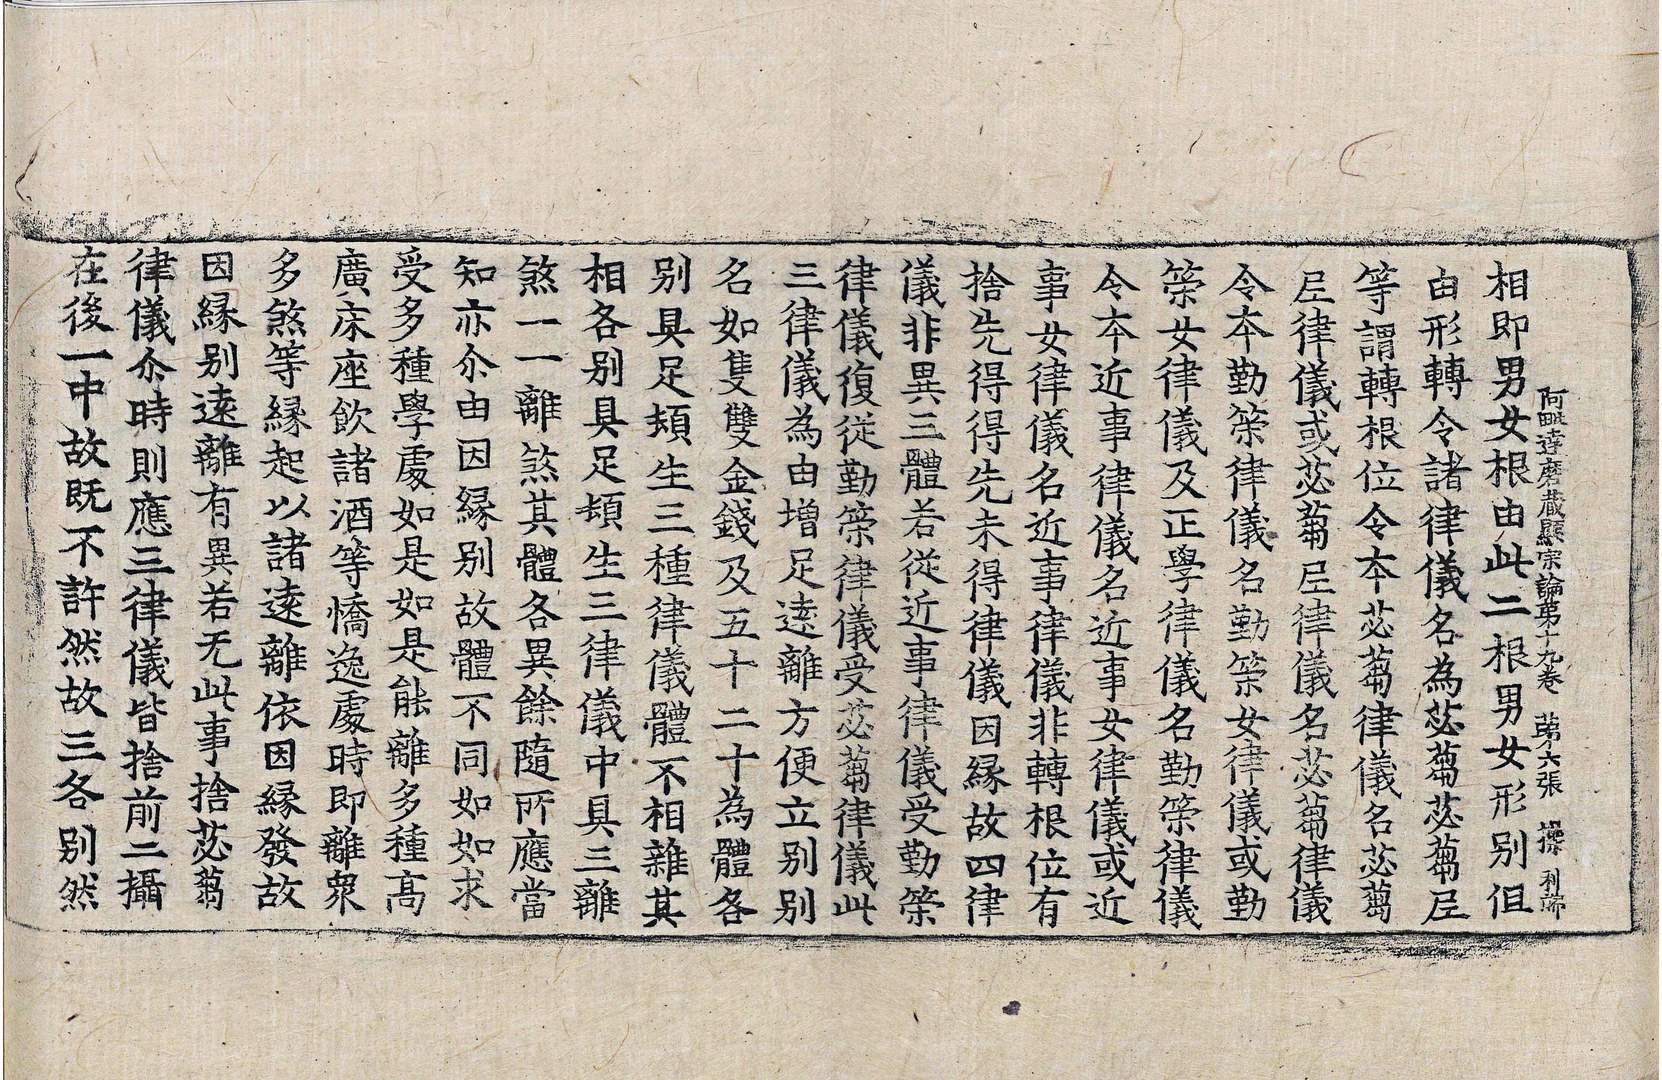 阿毗達磨藏顯宗論第十九卷 第六張 操 利
相即男女根由此二根男女形別但
由形轉令諸律儀名為苾蒭苾蒭尼
等謂轉根位令本苾蒭律儀名苾蒭
尼律儀或苾蒭尼律儀名苾蒭律儀
令本勤策律儀名勤策女律儀或勤
策女律儀及正學律儀名勤策律儀
令本近事律儀名近事女律儀或近
事女律儀名近事律儀非轉根位有
捨先得得先未得律儀因緣故四律
儀非異三體若從近事律儀受勤策
律儀復從勤策律儀受苾蒭律儀此
三律儀為由增足遠離方便立別別
名如隻雙金錢及五十二十為體各
別具足頓生三種律儀體不相雜其
相各別具足頓生三律儀中具三離
煞一一離煞其體各異餘隨所應當
知亦尒由因緣別故體不同如如求
受多種學處如是如是能離多種高
廣床座飲諸酒等憍逸處時即離眾
多煞等緣起以諸遠離依因緣發故
因緣別遠離有異若无此事捨苾蒭
律儀尒時則應三律儀皆捨前二攝
在後一中故既不許然故三各別然